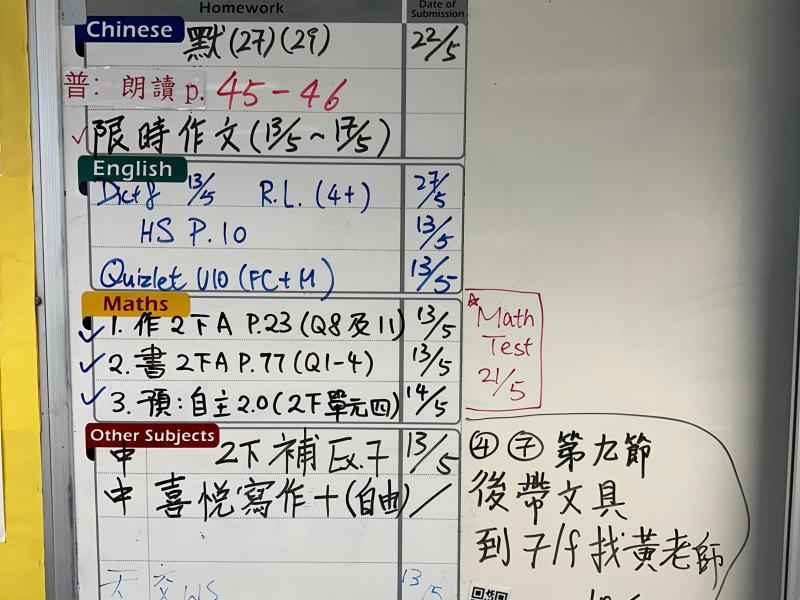 Homework
Date of Submission
Chinese
默(27)(29) 22/5
普: 朗讀 p. 45-46
限時作文(13/5~17/5)
English
Dict 8 13/5 R.L. (4+) 27/5
HS P.10 13/5
Quizlet U10 (FC+M) 13/5
Maths
1. 作2下A P.23 (Q8及11) 13/5
2. 書2下A P.77 (Q1-4) 13/5
3. 預:自主2.0(2下單元四) 14/5
Math
Test
21/5
Other Subjects
中 2下補 Ex.7 13/5
中 喜悅寫作+(自由) /
WS 13/5
④ ⑦ 第九節
後帶文具
到7/f找黃老師